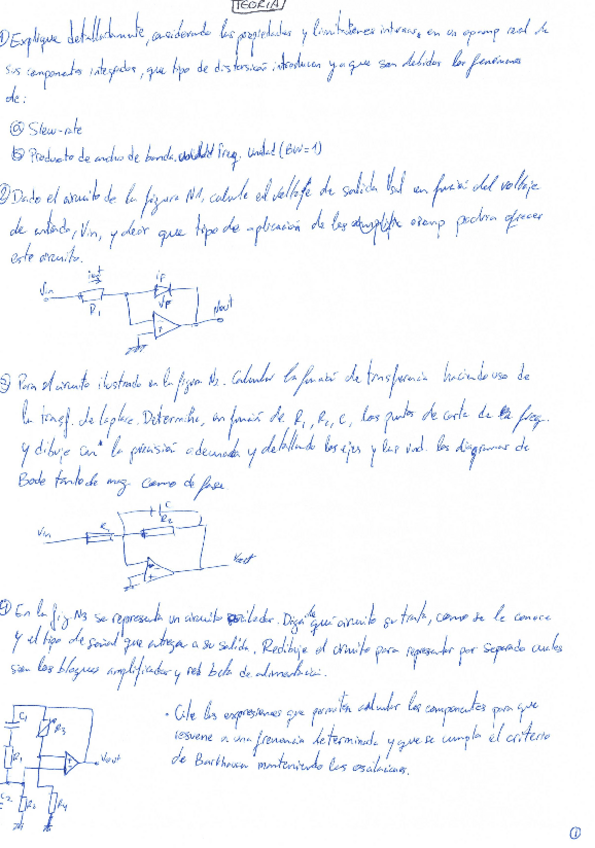 TEORIA
① Explique detalladamente, considerando las propiedades y limitaciones internas, en un opamp real de
sus componentes integrados, que tipo de distorsión introducen y a que son debidos los fenómenos
de:
ⓐ Slew-rate
ⓑ Producto de ancho de banda, Freq. unidad (BW=1)
② Dado el circuito de la figura Nº1, calcule el voltaje de salida Vsal en función del voltaje
de entrada, Vin, y decir que tipo de aplicación de los opamp podría ofrecer
este circuito.
Vin
R1
Vout
③ Para el circuito ilustrado en la figura N2. Calcular la función de transferencia haciendo uso de
la transf. de laplace. Determine, en función de R1, R2, C, los puntos de corte de freq.
y dibuje con la precisión adecuada y detallando los ejes y las und. los diagramas de
Bode tanto de mag. como de fase.
C
R2
Vin
Vout
④ En la fig. N3 se representa un circuito oscilador. Diga de qué circuito se trata, como se le conoce
y el tipo de señal que entrega a su salida. Redibuje el circuito para representar por separado cuales
son los bloques amplificador y red beta de alimentación.
C1
R3
R1
Vout
C2
R2
R4
· Cite las expresiones que permiten calcular los componentes para que
resuene a una frecuencia determinada y que se cumpla el criterio
de Barkhausen manteniendo las oscilaciones.
①